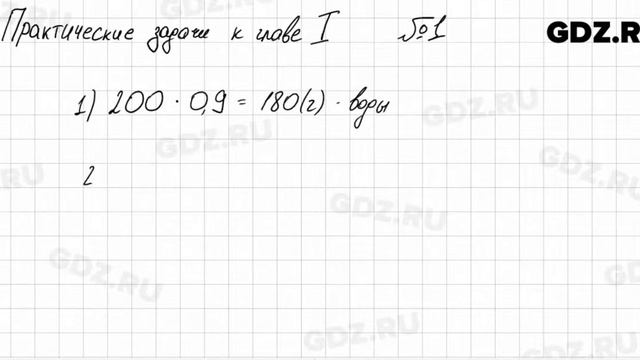 Практические задачи к главе I №1 GDZ.R
1) 200 · 0,9 = 180(г) · воды
2
GDZ.RU
GDZ.RU
GDZ.RU
GDZ.RU
GDZ.RU
GDZ.RU